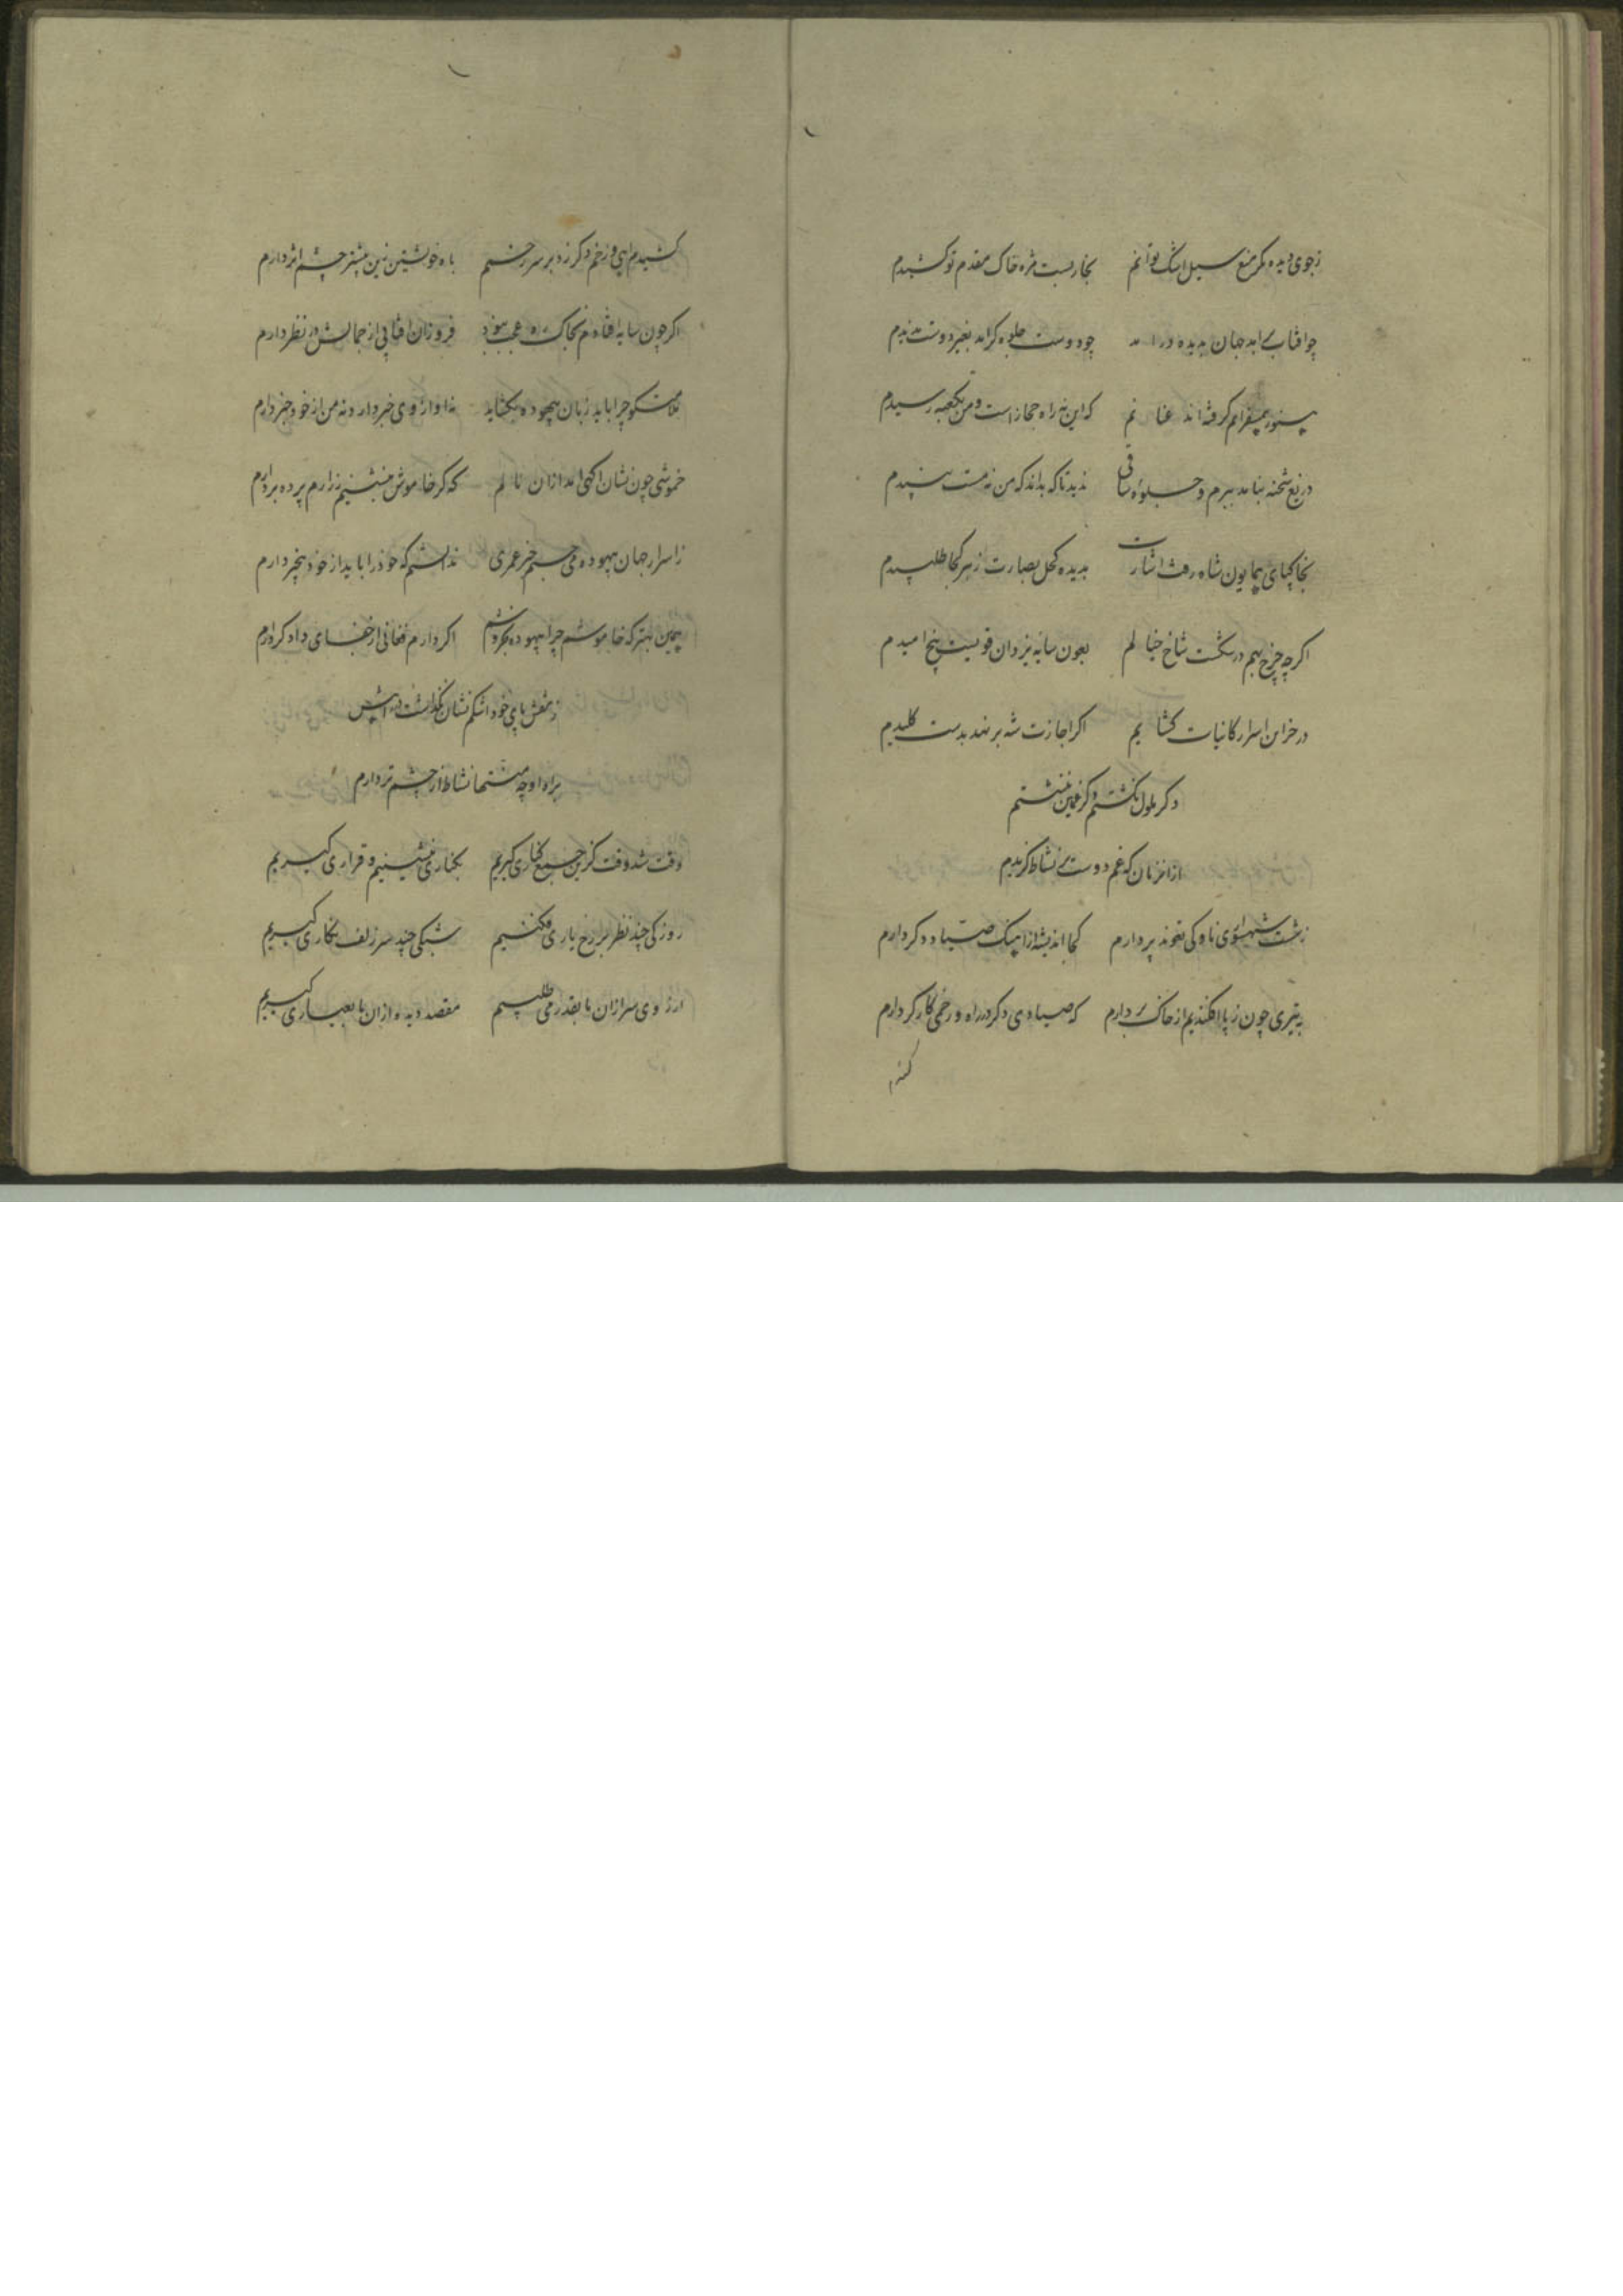 زجوی دیده مکر منع سیل اشک توانم بخاربست مژه خاک مقدم تو کشیدم
چو افتاب براید جهان بدیده دراید چو دوست جلوه کراید بغیر دوست ندیدم
هنوز همسفرانم کرفته اند عنانم که این نه راه حجاز است و من بکعبه رسیدم
دریغ شحنه نیامد ببزم و جلوه ساقی ندید تا که بداند که من نه مست نبیدم
بخاکپای همایون شاه رفت اشارت بدیده کحل بصارت زهر کجا طلبیدم
اکرچه چرخ بهم درشکست شاخ خیالم بعون سایه یزدان قویست بیخ امیدم
در خزاین اسرار کاینات کشایم اکر اجازت شه برنهد بدست کلیدم
دکر ملول نکشتم دکر غمین ننشستم
از انزمان که غم دوست بر نشاط کزیدم
زشست شهسواری ناوکی تا پر دارم کجا اندیشه از اهنک صیاد دکر دارم
به تیری چون ز پا افکندیم از خاک بردارم که صیادی دکر در راه و زخمی کارکر دارم
کشیدم
کشیدم اهی و زخم دکر زد بر سر زخمم باه خویشتن زین بیشتر چشم اثر دارم
اکر چون سایه افتادم بخاک ره عجب نبود فروزان افتابی از جمالش در نظر دارم
ملامتکو چرا باید زبان بیهوده بکشاید نه او از وی خبر دارد نه من از خود خبر دارم
خموشی چون نشان اکهی امد ازان نالم که کر خاموش بنشینم ز رازم پرده بردارم
ز اسرار جهان بیهوده می جستم خبر عمری ندانستم که خود را باید از خود بیخبر دارم
همین بهتر که خاموشم چرا بیهوده بخروشم اکر دارم فغانی از جفای دادکر دارم
ز نقش پای خود اشکم نشان نکذاشت در راهش
براه او چه منتها نشاط از چشم تر دارم
وقت شد وقت کزین جمع کناری کیریم بکناری بنشینیم و قراری کیریم
روزکی چند نظر بر رخ یاری فکنیم شبکی چند سر زلف نکاری کیریم
ارزوی سر ازان پا بقدر می طلبیم مقصد دیده ازان پا بغباری کیریم